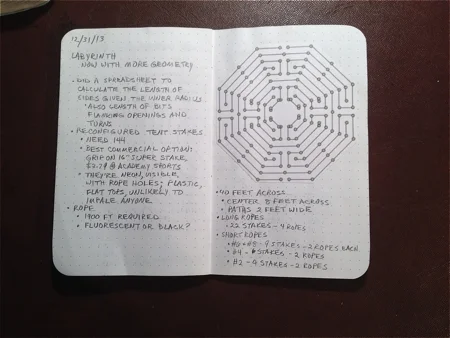 12/31/13
LABYRINTH
NOW WITH MORE GEOMETRY
• DID A SPREADSHEET TO
CALCULATE THE LENGTH OF
SIDES GIVEN THE INNER RADIUS
• ALSO LENGTH OF BITS
FLANKING OPENINGS AND
TURNS
• RECONFIGURED TENT STAKES
• NEED 144
• BEST COMMERCIAL OPTION:
GRIP ON 16" SUPER STAKE,
@ ACADEMY SPORTS
• THEY'RE NEON, VISIBLE,
WITH ROPE HOLES; PLASTIC,
FLAT TOPS, UNLIKELY TO
IMPALE ANYONE.
• ROPE
• 1400 FT REQUIRED
• FLUORESCENT OR BLACK?
40 FEET ACROSS
• CENTER 8 FEET ACROSS
• PATHS 2 FEET WIDE
• LONG ROPES
• 22 STAKES - 4 ROPES
• SHORT ROPES
• #6 #8 - 9 STAKES - 2 ROPES EACH
• #4 - STAKES - 2 ROPES
• #2 - 9 STAKES - 2 ROPES